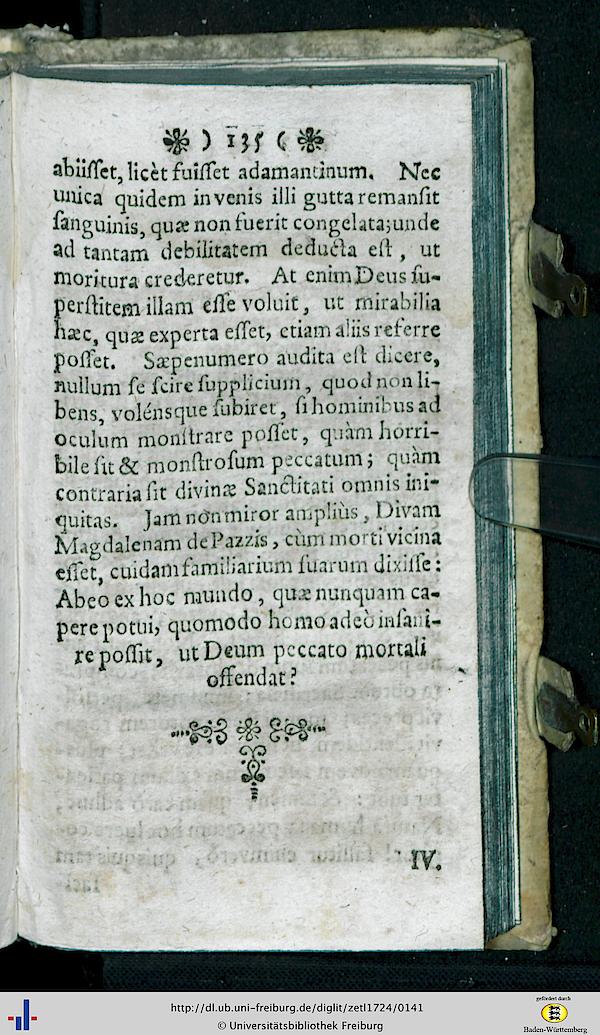 ❋ ) 135 ( ❋
abiiſſet, licèt fuiſſet adamantinum. Nec
unica quidem in venis illi gutta remanſit
ſanguinis, quæ non fuerit congelata; unde
ad tantam debilitatem deducta eſt, ut
moritura crederetur. At enim Deus ſu-
perſtitem illam eſſe voluit, ut mirabilia
hæc, quæ experta eſſet, etiam aliis referre
poſſet. Sæpenumero audita eſt dicere,
nullum ſe ſcire ſupplicium, quod non li-
bens, volénsque ſubiret, ſi hominibus ad
oculum monſtrare poſſet, quàm horri-
bile ſit & monſtroſum peccatum; quàm
contraria ſit divinæ Sanctitati omnis ini-
quitas. Jam non miror ampliùs, Divam
Magdalenam de Pazzis, cùm morti vicina
eſſet, cuidam familiarium ſuarum dixiſſe:
Abeo ex hoc mundo, quæ nunquam ca-
pere potui, quomodo homo adeò inſani-
re poſſit, ut Deum peccato mortali
offendat?
IV.
http://dl.ub.uni-freiburg.de/diglit/zetl1724/0141
© Universitätsbibliothek Freiburg
gefördert durch
Baden-Württemberg